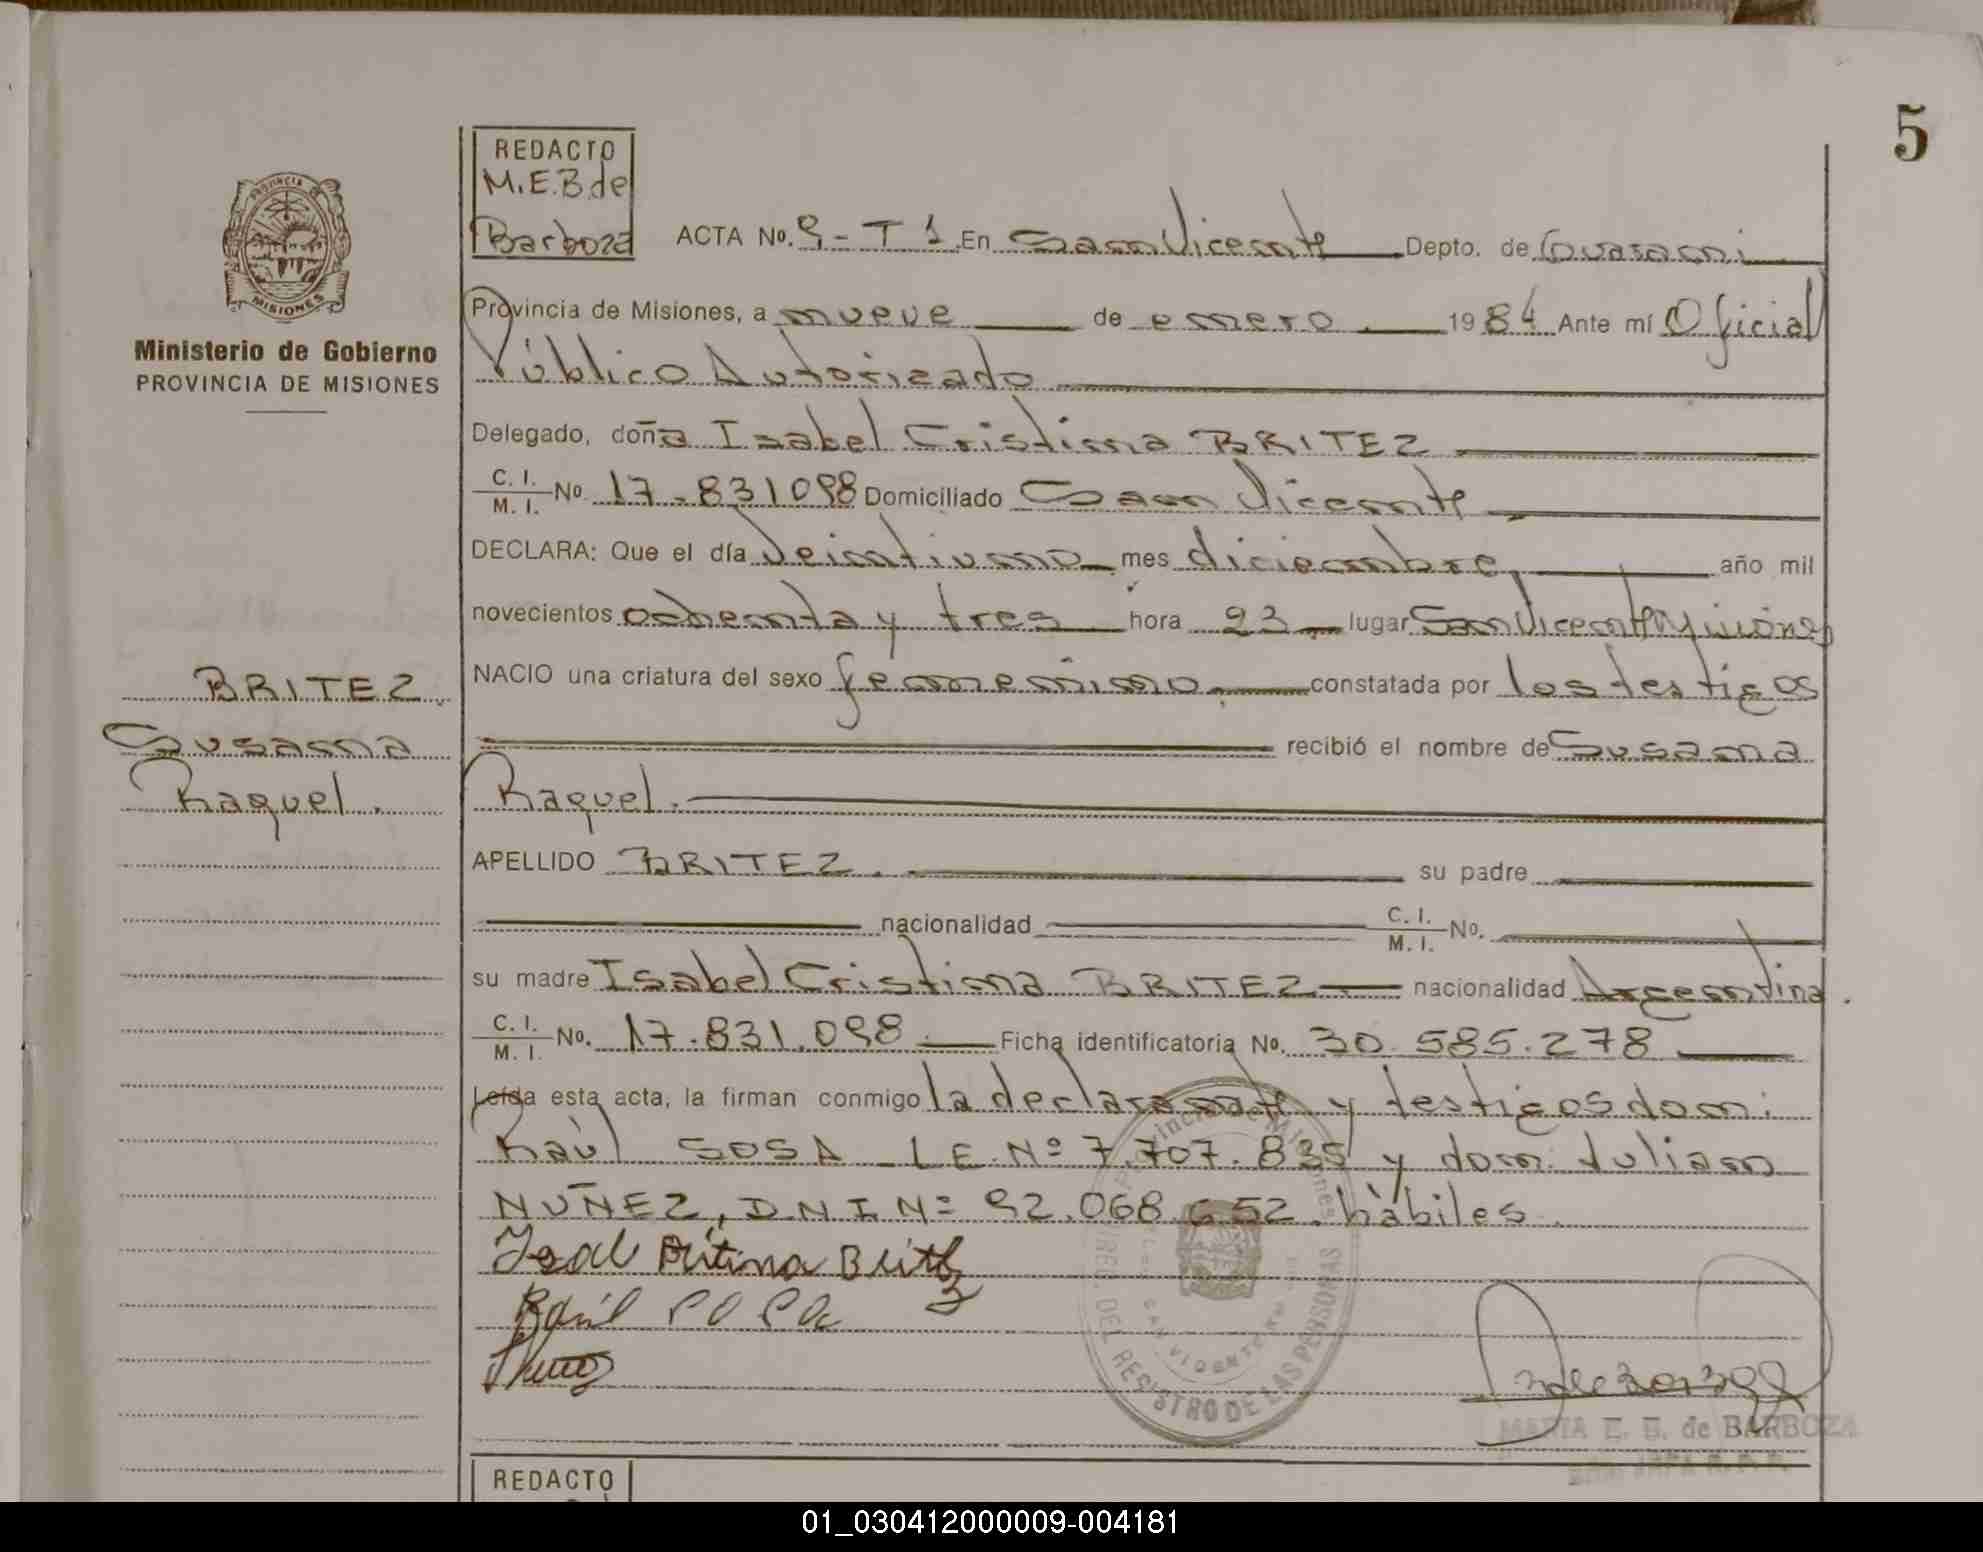 5
REDACTO
M.E.B de
Barboza
PROVINCIA DE
MISIONES
Ministerio de Gobierno
PROVINCIA DE MISIONES
ACTA No. 9 - T 1 En San Vicente Depto. de Guarani
Provincia de Misiones, a nueve de enero 1984 Ante mí Oficial
Público Autorizado
Delegado, doña Isabel Cristina BRITEZ
C. I. / M. I. No 17.831098 Domiciliado San Vicente
DECLARA: Que el día veintiuno mes diciembre, año mil
novecientos ochenta y tres hora 23 lugar San Vicente Misiones
NACIO una criatura del sexo femenino. constatada por los testigos
recibió el nombre de Susana
Raquel.
BRITEZ.
Susana
Raquel.
APELLIDO BRITEZ. su padre
nacionalidad C. I. / M. I. No.
su madre Isabel Cristina BRITEZ nacionalidad Argentina.
C. I. / M. I. No. 17.831.098 Ficha identificatoria No. 30.585.278
Leída esta acta, la firman conmigo la declarante y testigos don:
Raúl SOSA LE Nº 7.707.835 y don: Julian
NUÑEZ, D.N.I Nº 92.068.652. hàbiles.
Raúl
Provincia de Misiones
DEL REGISTRO DE LAS PERSONAS
SAN VICENTE
MARIA E. B. de BARBOZA
REDACTO
01_030412000009-004181